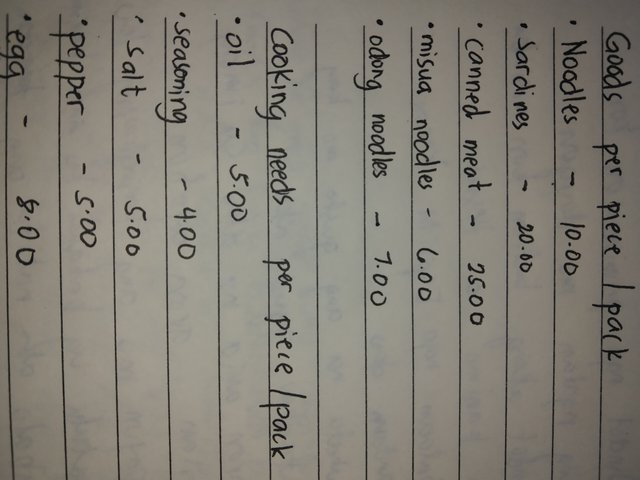 Goods per piece / pack
• Noodles - 10.00
• Sardines - 20.00
• canned meat - 25.00
• misua noodles - 6.00
• odong noodles - 7.00
Cooking needs per piece / pack
• oil - 5.00
• seasoning - 4.00
• salt - 5.00
• pepper - 5.00
• egg - 8.00